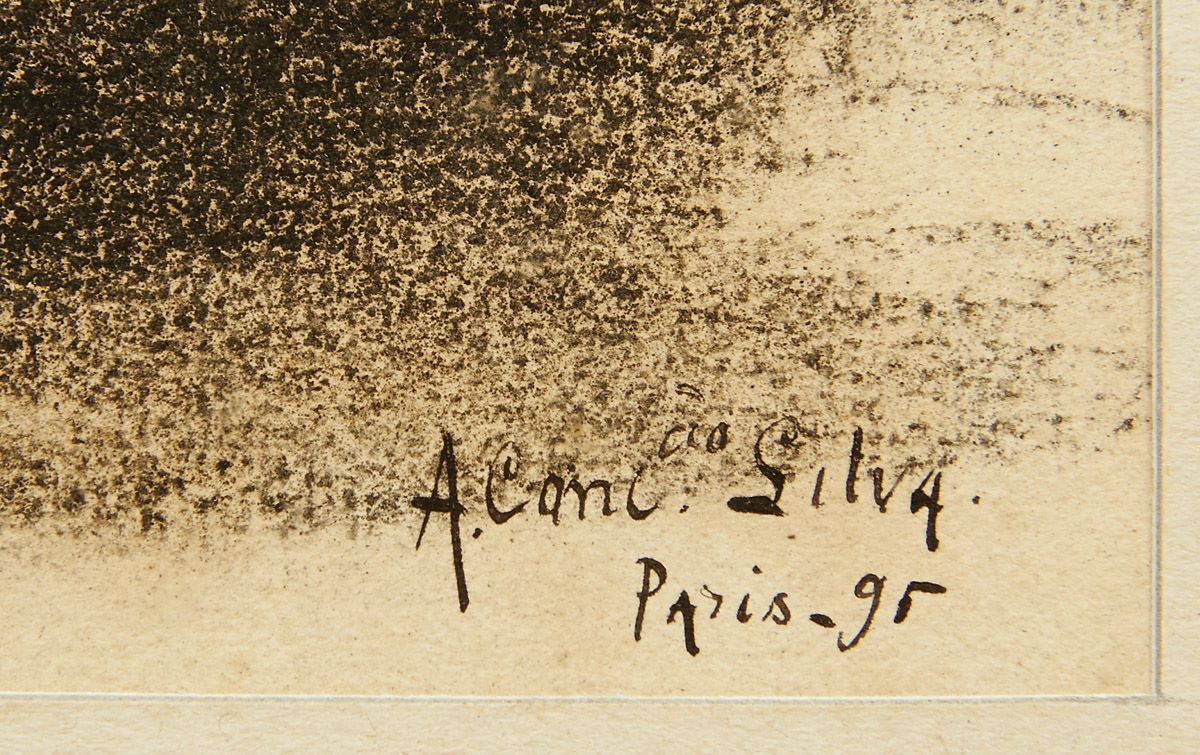 A. Conc.ão Silva.
Paris - 95